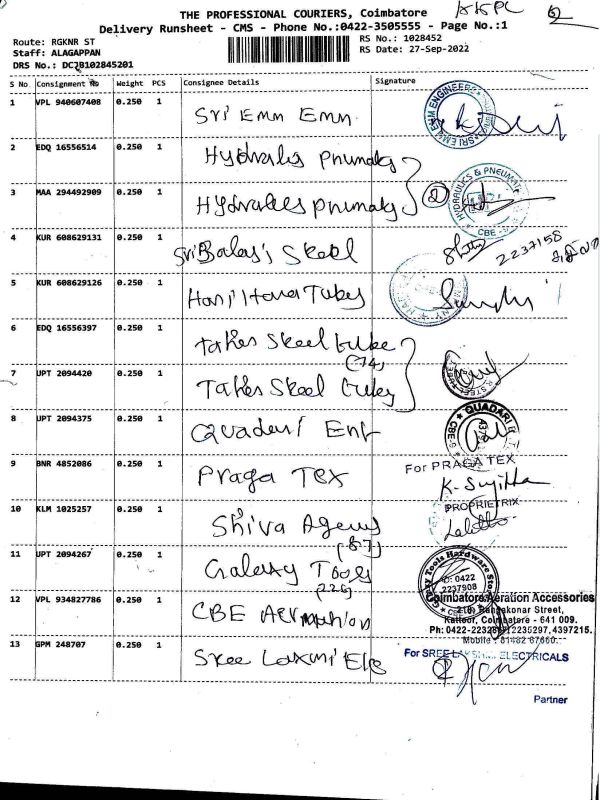 THE PROFESSIONAL COURIERS, Coimbatore
KKPC
Delivery Runsheet - CMS - Phone No.:0422-3505555 - Page No.:1
Route: RGKNR ST
Staff: ALAGAPPAN
DRS No.: DCJB102845201
RS No.: 1028452
RS Date: 27-Sep-2022
S No. Consignment No Weight PCS Consignee Details Signature
1 VPL 940607408 0.250 1 Sri Emm Emm
2 EDQ 16556514 0.250 1 Hydralis Pnumatg
3 MAA 294492909 0.250 1 Hydralles pnumatg
2
CBE
4 KUR 608629131 0.250 1 Sri Balaji Skeel
2237158
5 KUR 608629126 0.250 1 Hanil Hana Tubes
6 EDQ 16556397 0.250 1 Takes Skeel tube
(74)
7 UPT 2094420 0.250 1 Takes Skeel tubes
8 UPT 2094375 0.250 1 Quadari Ent
QUADARI
CBE-9
9 BNR 4852086 0.250 1 Praga Tex
For PRAGA TEX
K. Sujitha
PROPRIETRIX
10 KLM 1025257 0.250 1 Shiva Agency
(87)
Lalitha
11 UPT 2094267 0.250 1 Galaxy Tools
(226)
Galaxy Tools Hardware Store
0422
2237908
12 VPL 934827786 0.250 1 CBE Aermahion
Coimbatore Aeration Accessories
Rangakonar Street,
Kattoor, Coimbatore - 641 009.
Ph: 0422-22328 2235297, 4397215.
Mobile : 81482 67660.
13 GPM 248707 0.250 1 Sree Laxmi Ele
For SREE LAKSHMI ELECTRICALS
Partner